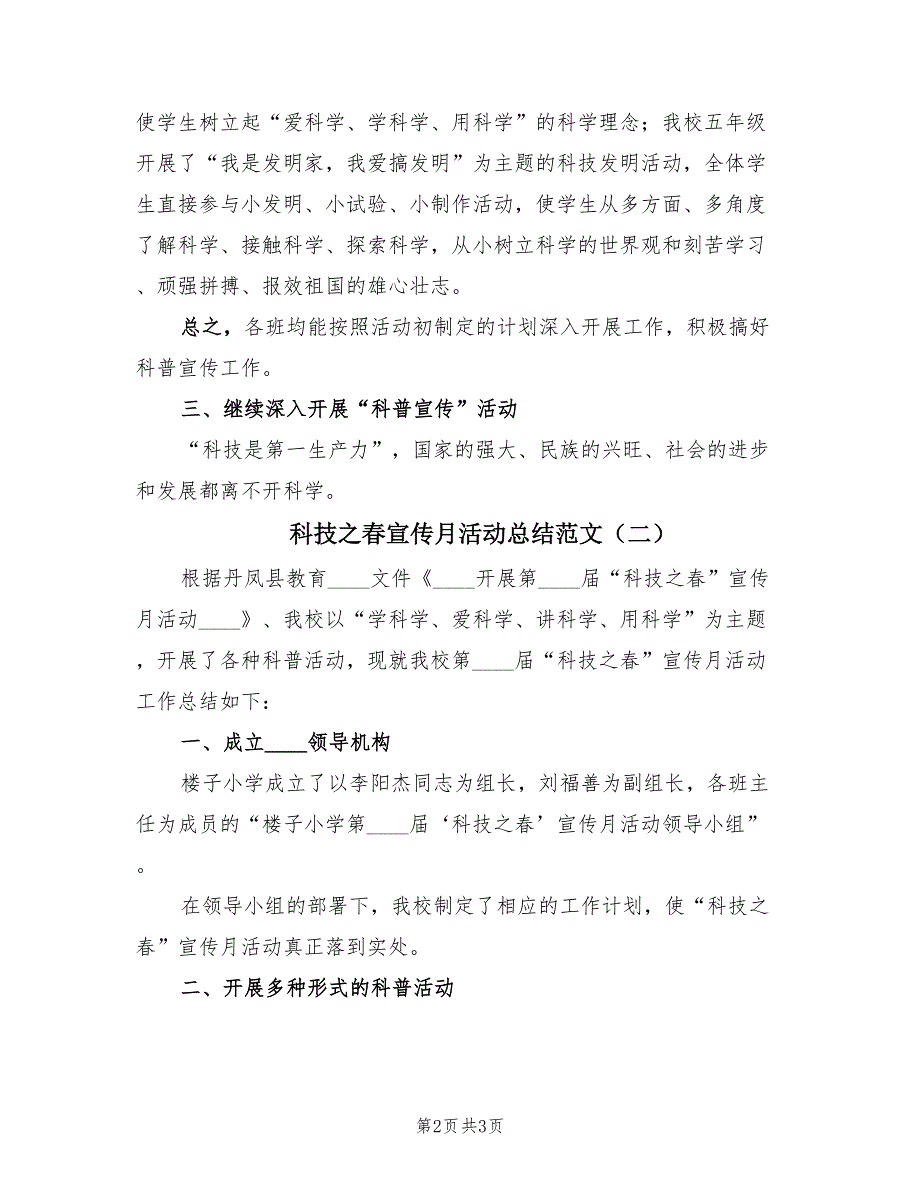 使学生树立起“爱科学、学科学、用科学”的科学理念；我校五年级
开展了“我是发明家，我爱搞发明”为主题的科技发明活动，全体学
生直接参与小发明、小试验、小制作活动，使学生从多方面、多角度
了解科学、接触科学、探索科学，从小树立科学的世界观和刻苦学习
、顽强拼搏、报效祖国的雄心壮志。
总之，各班均能按照活动初制定的计划深入开展工作，积极搞好
科普宣传工作。
三、继续深入开展“科普宣传”活动
“科技是第一生产力”，国家的强大、民族的兴旺、社会的进步
和发展都离不开科学。
科技之春宣传月活动总结范文（二）
根据丹凤县教育____文件《____开展第____届“科技之春”宣传
月活动____》、我校以“学科学、爱科学、讲科学、用科学”为主题
，开展了各种科普活动，现就我校第____届“科技之春”宣传月活动
工作总结如下：
一、成立____领导机构
楼子小学成立了以李阳杰同志为组长，刘福善为副组长，各班主
任为成员的“楼子小学第____届‘科技之春’宣传月活动领导小组”
。
在领导小组的部署下，我校制定了相应的工作计划，使“科技之
春”宣传月活动真正落到实处。
二、开展多种形式的科普活动
第2页 共3页